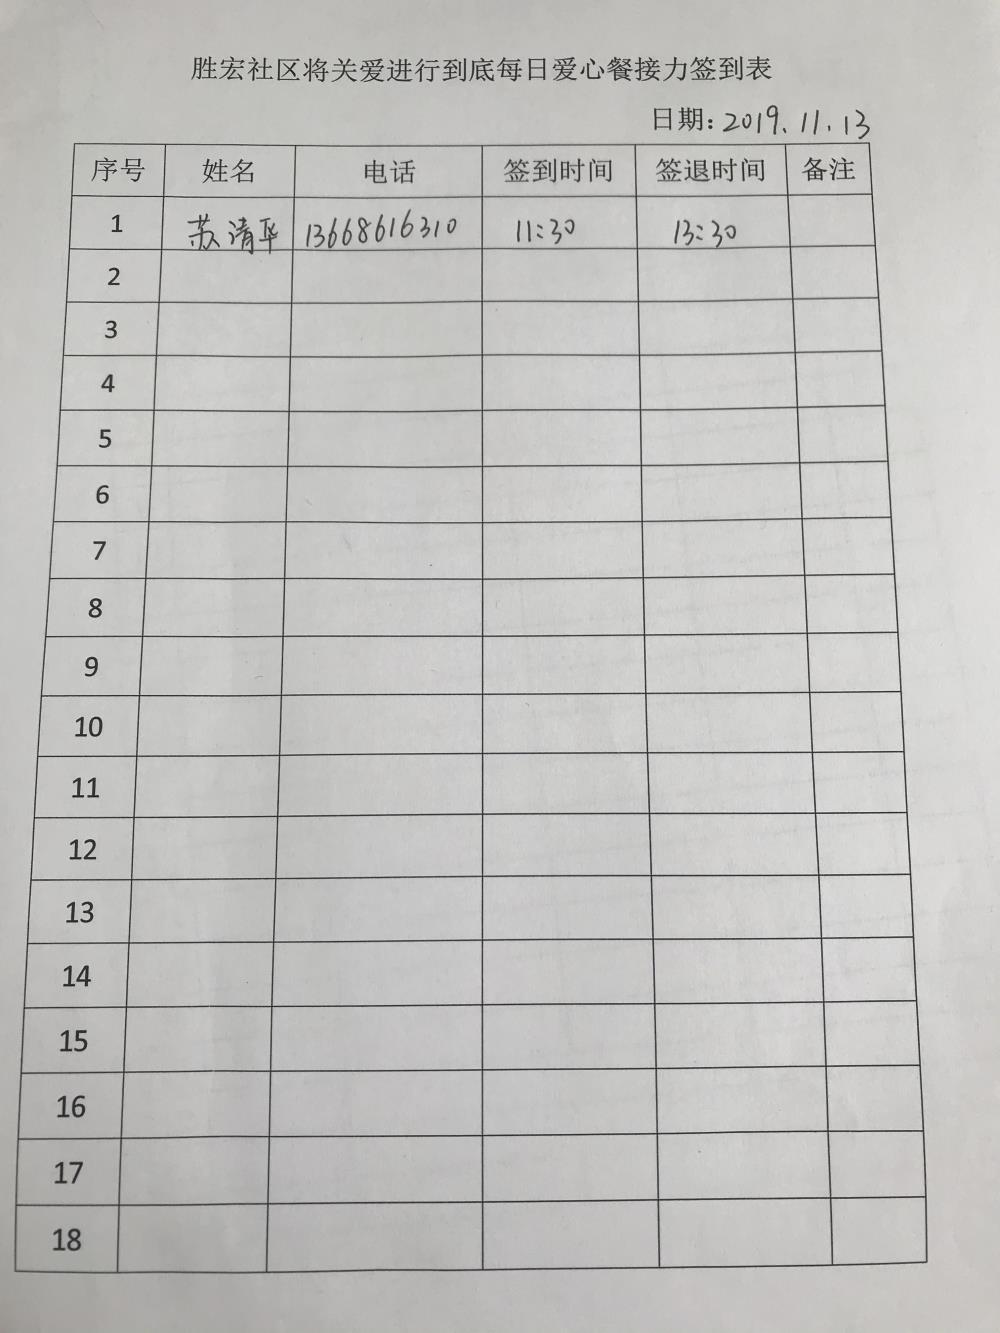 胜宏社区将关爱进行到底每日爱心餐接力签到表
日期：2019.11.13
序号 姓名 电话 签到时间 签退时间 备注
1 苏清华 13668616310 11:30 13:30
2
3
4
5
6
7
8
9
10
11
12
13
14
15
16
17
18